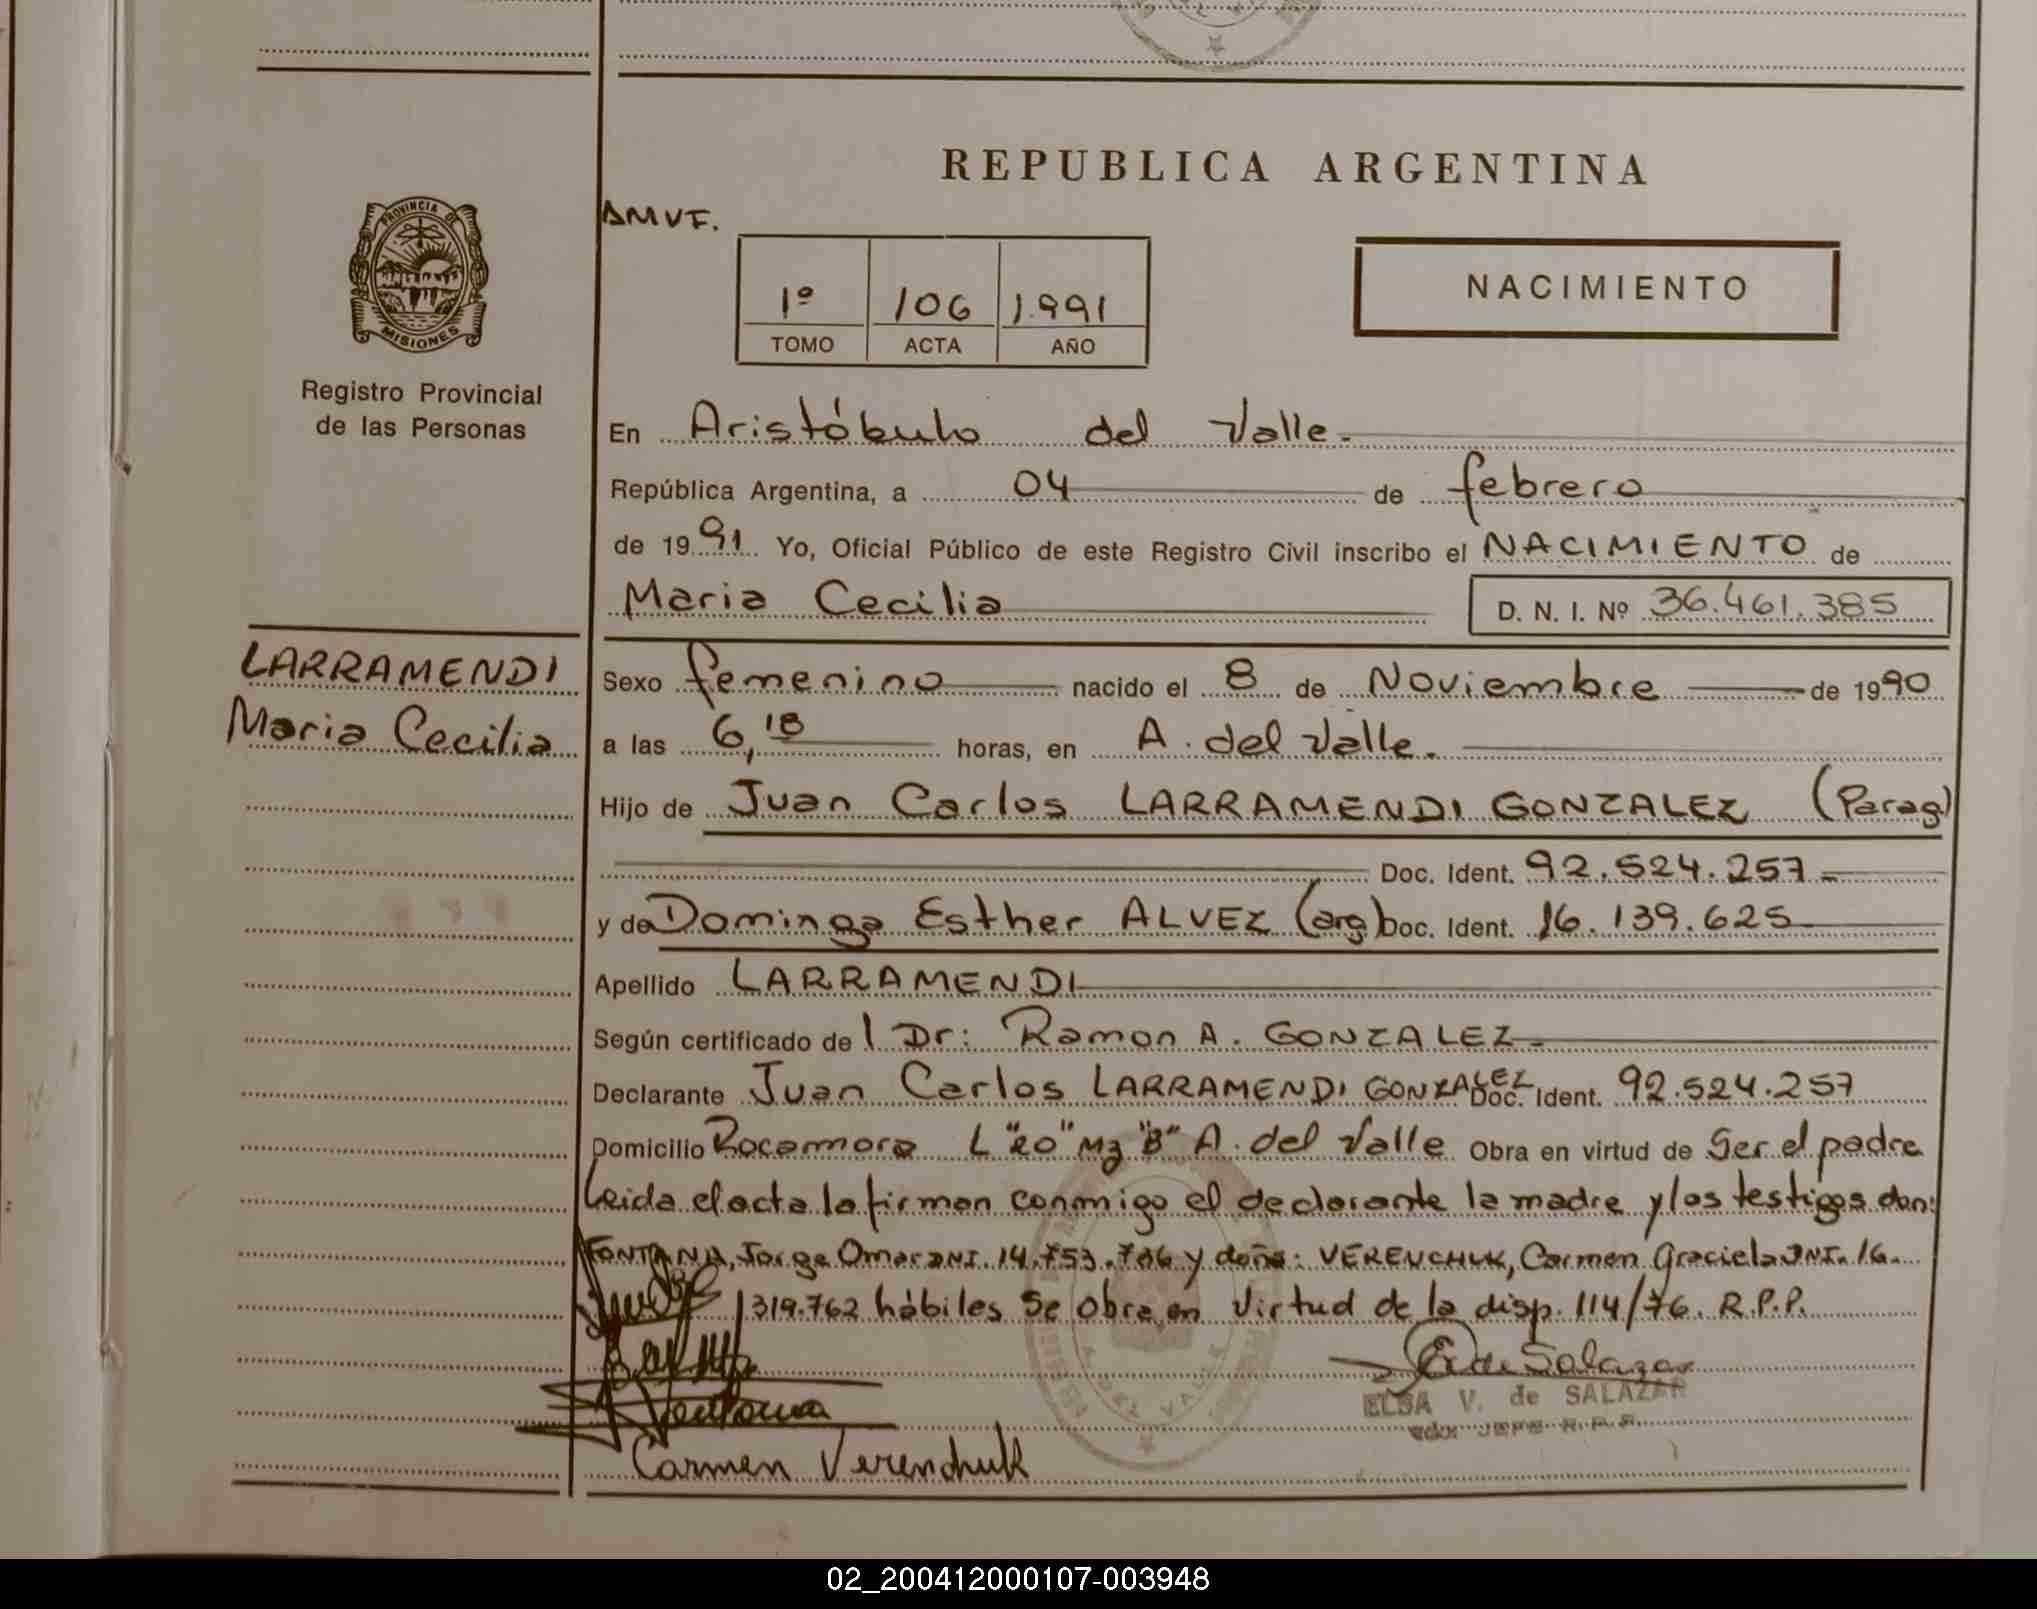 REPUBLICA ARGENTINA
PROVINCIA DE
MISIONES
Registro Provincial
de las Personas
AMVF.
1º 106 1.991
TOMO ACTA AÑO
NACIMIENTO
En Aristóbulo del Valle.
República Argentina, a 04 de febrero
de 1991 Yo, Oficial Público de este Registro Civil inscribo el NACIMIENTO de
Maria Cecilia D. N. I. Nº 36.461.385
LARRAMENDI
Maria Cecilia
Sexo femenino nacido el 8 de Noviembre de 1990
a las 6,18 horas, en A. del Valle.
Hijo de Juan Carlos LARRAMENDI GONZALEZ (Parag)
Doc. Ident. 92.524.257
y de Dominga Esther ALVEZ (arg) Doc. Ident. 16.139.625
Apellido LARRAMENDI
Según certificado del Dr: Ramon A. GONZALEZ
Declarante Juan Carlos LARRAMENDI GONZALEZ Doc. Ident. 92.524.257
Domicilio Rocamora L "20" Mz "B" A. del Valle Obra en virtud de Ser el padre
Leida el acta la firman conmigo el declarante la madre y los testigos don:
FONTANA, Jorge Omar DNI. 14.753.706 y doña: VERENCHUK, Carmen Graciela DNI. 16.
319.762 hábiles Se obra en virtud de la disp. 114/76. R.P.P.
E. V. de Salazar
ELSA V. de SALAZAR
JEFE R.P.P.
Carmen Verenchuk
02_200412000107-003948